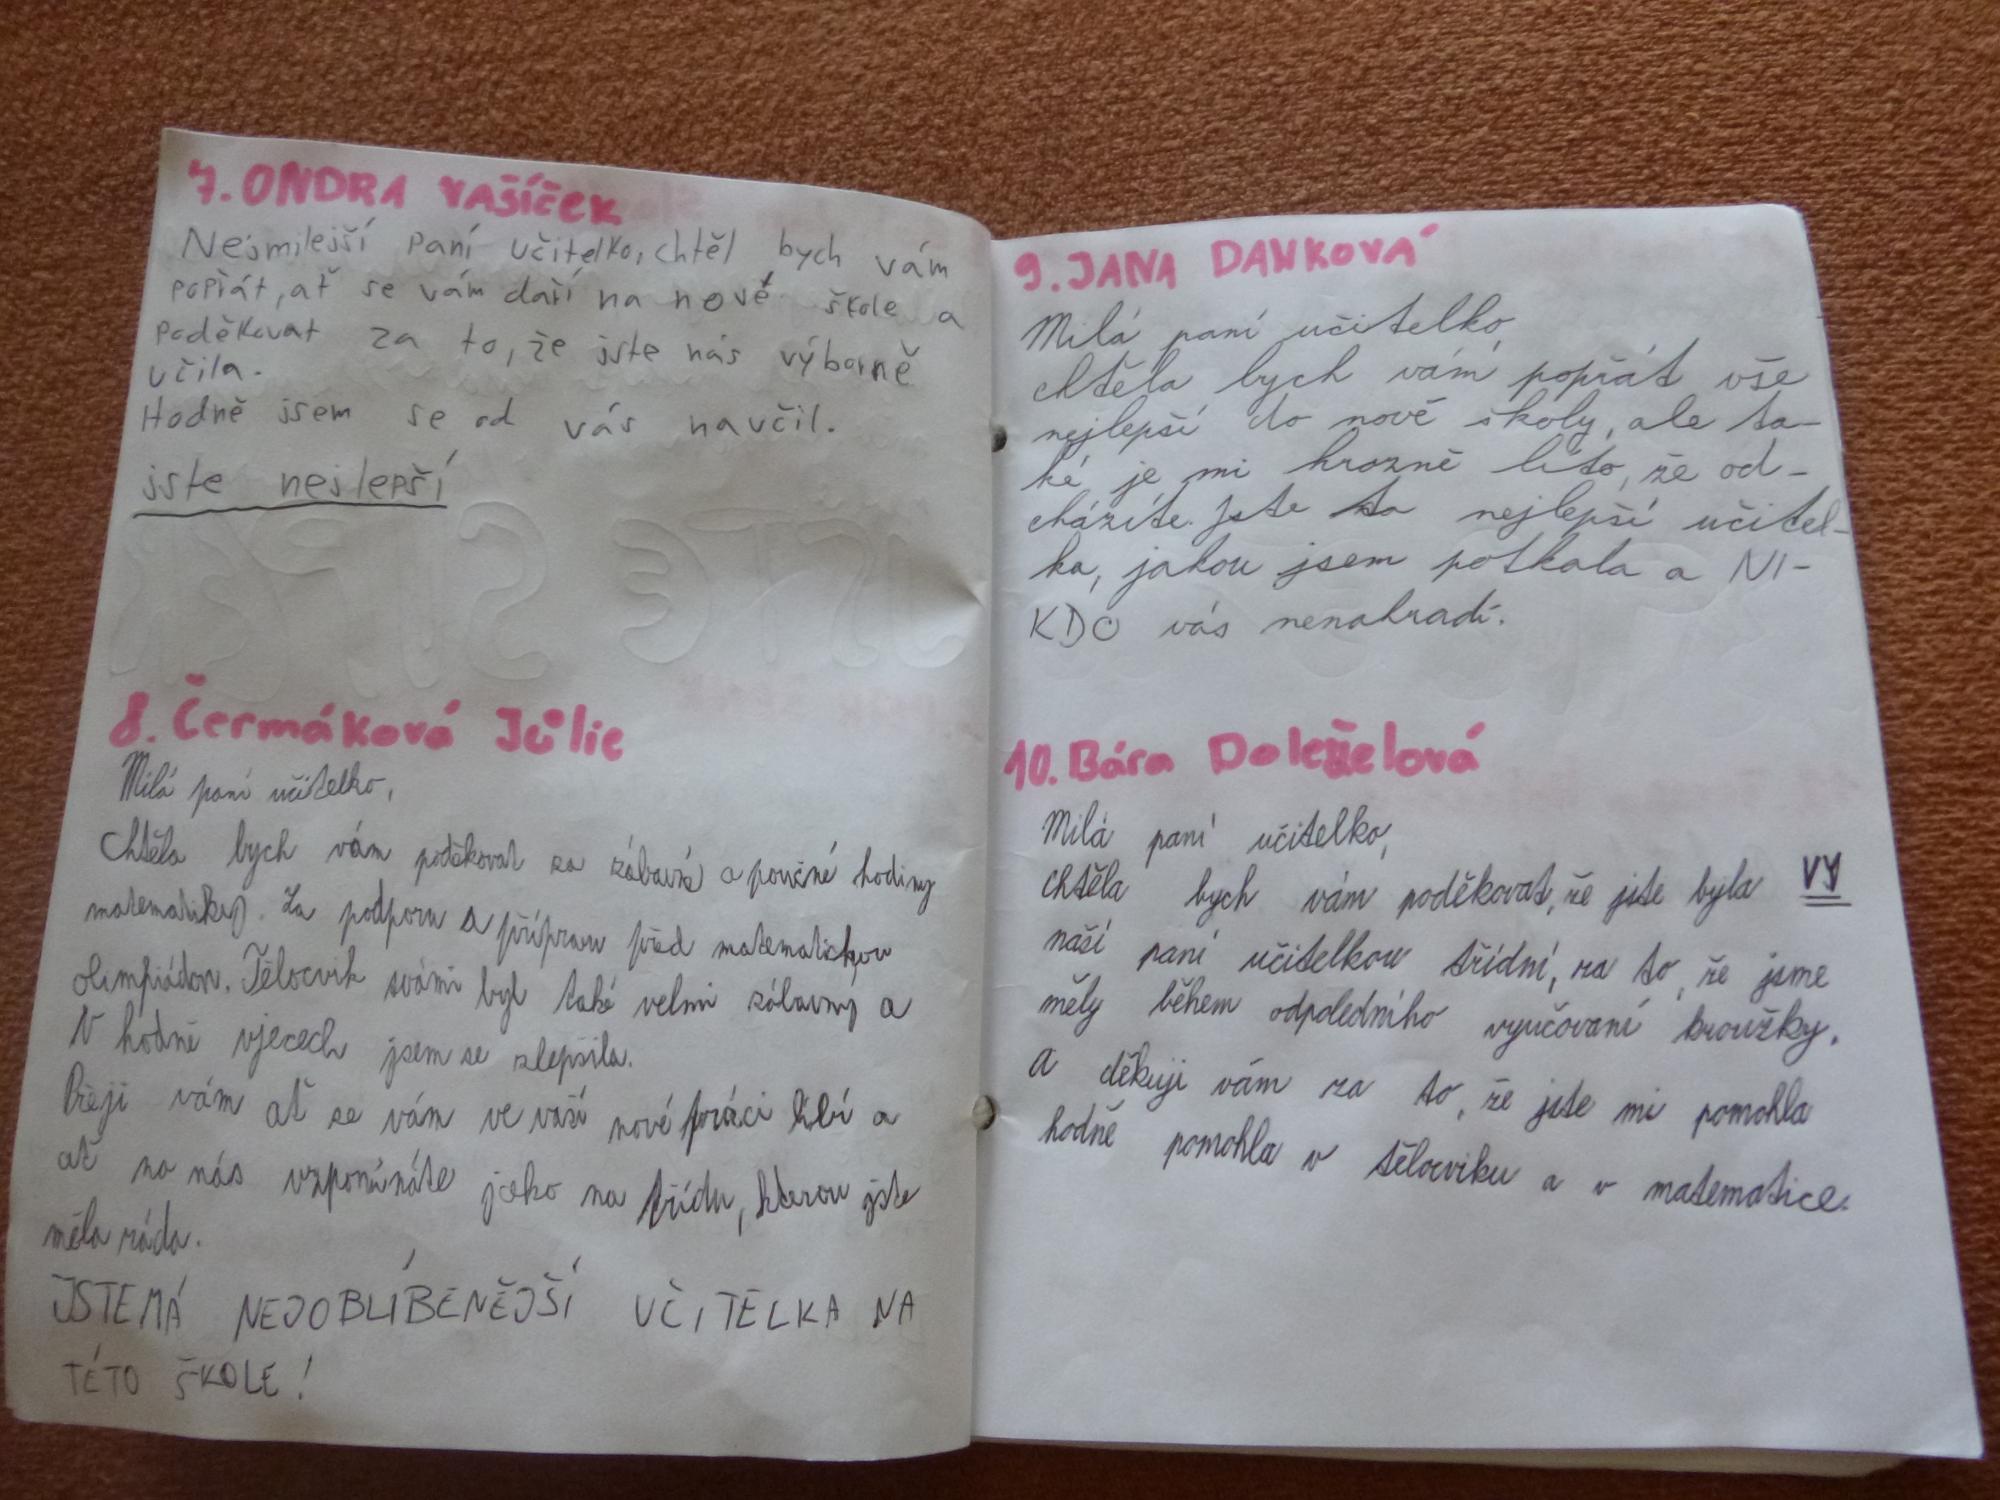 7. ONDRA VAŠÍČEK
Nejsmilejší paní učitelko, chtěl bych vám
popřát, ať se vám daří na nové škole a
poděkovat za to, že jste nás výborně
učila.
Hodně jsem se od vás naučil.
jste nejlepší
8. Čermáková Júlie
Milá paní učitelko,
Chtěla bych vám poděkovat za zábavné a poučné hodiny
matematiky. Za podporu a přípravu před matematickou
olimpiádou. Tělocvik svámi byl také velmi zábavný a
V hodně vjecech jsem se zlepšila.
Přeji vám ať se vám ve vaší nové práci líbí a
ať na nás vzpomínáte jako na třídu, kterou jste
měla ráda.
JSTE MÁ NEJOBLÍBENĚJŠÍ UČITELKA NA
TÉTO ŠKOLE!
9. JANA DANKOVÁ
Milá paní učitelko,
chtěla bych vám popřát vše
nejlepší do nové školy, ale ta-
ké je mi hrozně líto, že od-
cházíte. Jste ta nejlepší učitel-
ka, jakou jsem potkala a NI-
KDO vás nenahradí.
10. Bára Doleželová
Milá paní učitelko,
chtěla bych vám poděkovat, že jste byla VY
naší paní učitelkou třídní, za to, že jsme
měly během odpoledního vyučovaní kroužky.
A děkuji vám za to, že jste mi pomohla
hodně pomohla v tělocviku a v matematice.